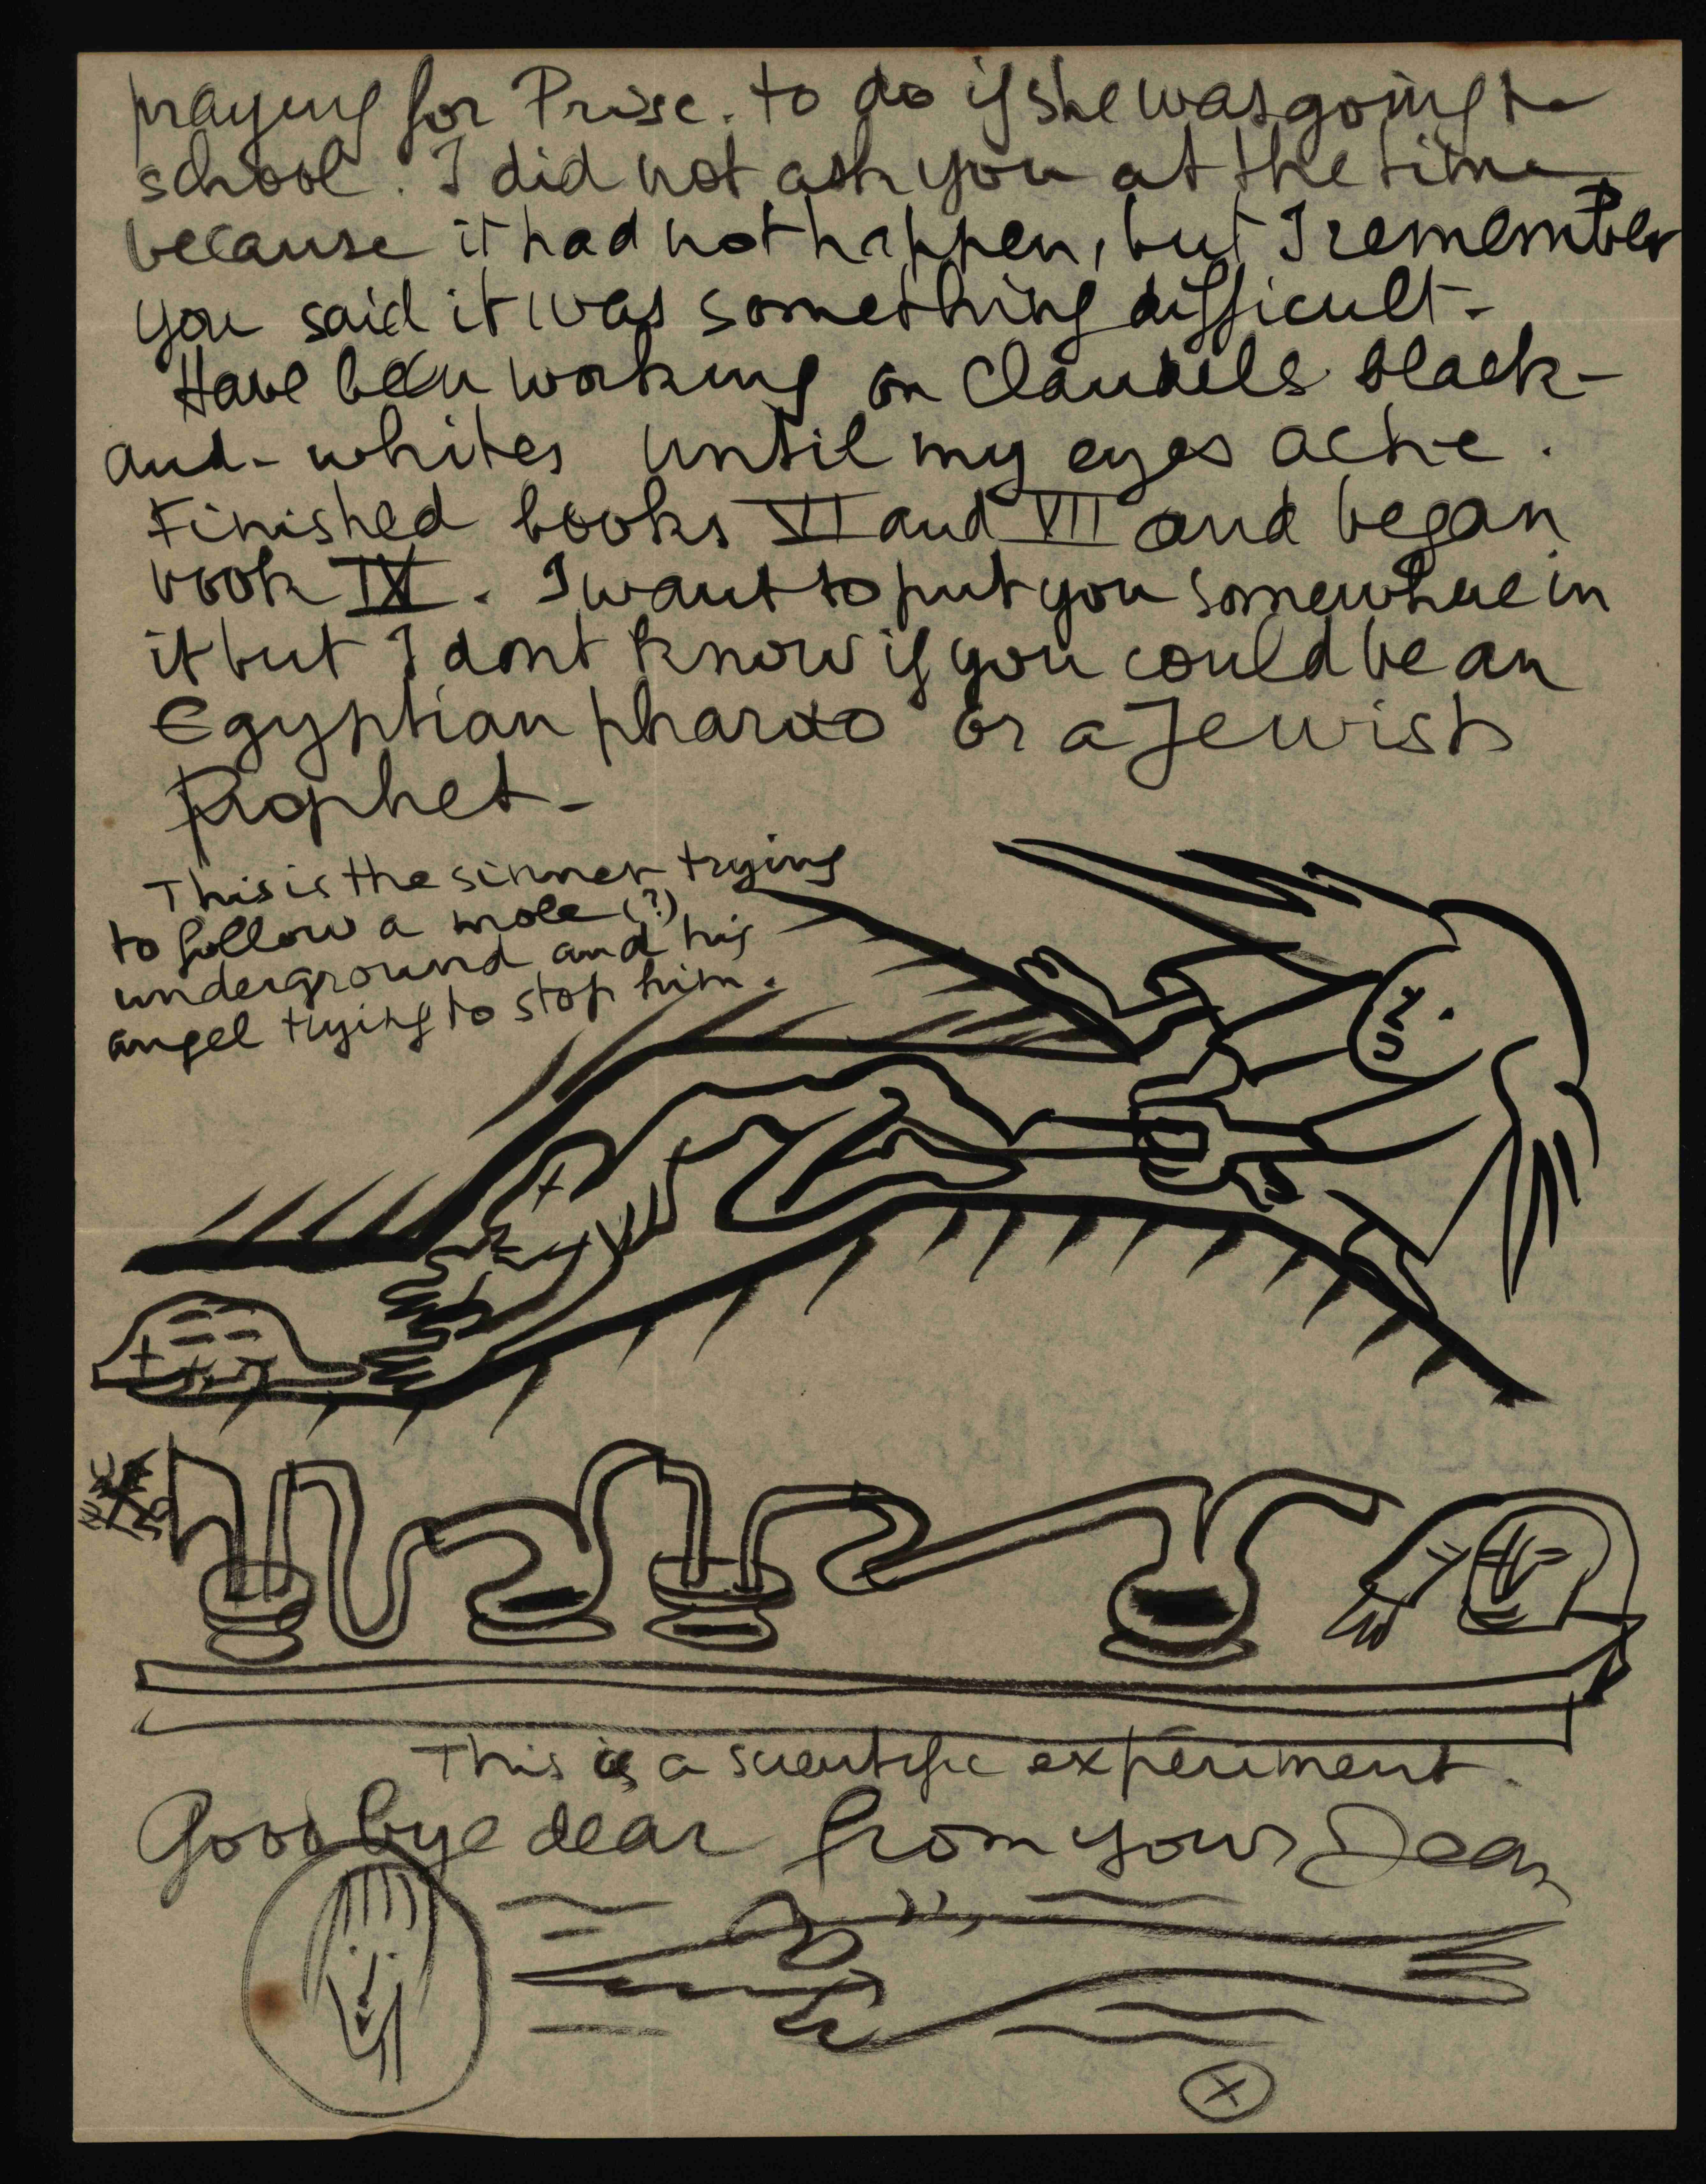 praying for Prisse. to do if she was going to
school. I did not ask you at the time
because it had not happen, but I remember
you said it was something difficult-
Have been working on Claudels black-
and- whites until my eyes ache.
Finished books VI and VII and began
book IX. I want to put you somewhere in
it but I dont know if you could be an
Egyptian pharao or a Jewish
Prophet-
This is the sinner trying
to follow a mole (?)
underground and his
angel trying to stop him.
This is a scientific experiment.
Good bye dear from your Dear